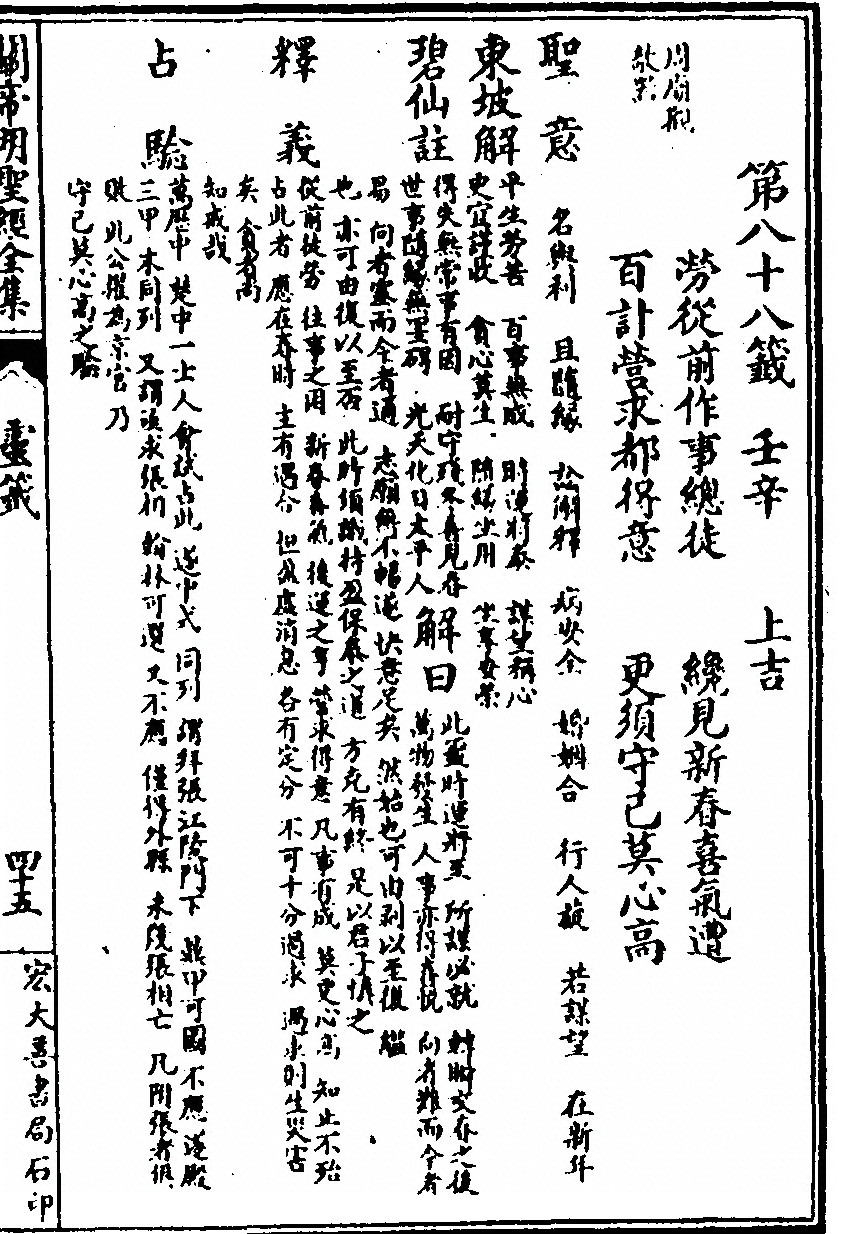 周廟觀
敬器
第八十八籤 壬辛 上吉
勞從前作事總徒 纔見新春喜氣遭
百計營求都得意 更須守己莫心高
聖意 名與利 且隨緣 訟漸釋 病安全 婚姻合 行人旋 若謀望 在新年
東坡解 平生勞苦 百事無成 時運將泰 謀望稱心
更宜謹收 貪心莫生 隨緣 坐享安榮
碧仙註 得失無常事有因 耐守殘冬喜見春
世事隨緣無罣碍 光天化日太平人
解曰 此籤時運將至 所謀必就 轉眼交春之後
萬物發生 人事亦得喜悅 向者難而今者
易 向者塞而今者通 志願無不暢遂 快意足矣 然始也可由剥以至復 繼
也 亦可由復以至否 此時須識持盈保泰之道 方克有終 是以君子慎之
釋義 從前徒勞 往事之困 新春喜氣 後運之亨 營求得意 凡事有成 莫更心高 知止不殆
占此者 應在春時 主有遇合 但盈虛消息 各有定分 不可十分過求 過求則生災害
矣 貪者尚
知戒哉
占驗 萬歷中 楚中一士人會試占此 遂中式 同列 謂拜張江陵門下 鼎甲可圖 不應 遂殿
三甲 木同列 又謂派求張相 翰林可選 又不應 僅得外縣 未幾張相亡 凡附張者俱
敗 此公擢為京官 乃
守己莫心高之驗
關帝明聖經全集
靈籤
四十五
宏大善書局石印